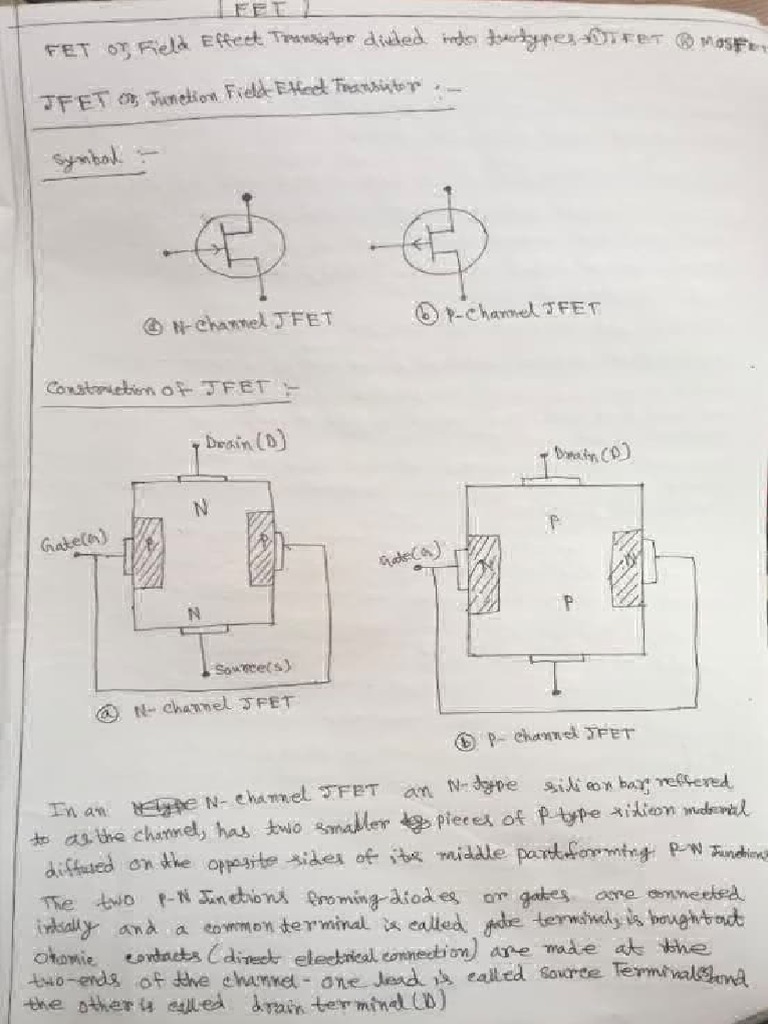 FET
FET or Field Effect Transistor divided into two types JFET MOSFET
JFET or Junction Field Effect Transistor :-
Symbol :-
ⓐ N-channel JFET
ⓑ P-channel JFET
Construction of JFET :-
Drain(D)
Drain(D)
N
P
Gate(G)
P
P
Gate(G)
N
N
N
P
Source(s)
ⓐ N- channel JFET
ⓑ P- channel JFET
In an N-channel JFET an N-type silicon bar, reffered
to as the channel, has two smaller pieces of P type silicon material
diffused on the opposite sides of its middle part forming P-N Junctions
The two P-N Junctions froming diodes or gates are connected
and a common terminal is called gate terminal, is bought out
Ohomic contacts (direct electrical connection) are made at the
two-ends of the channel - one lead is called source Terminal(s) and
the other is called drain terminal (D)